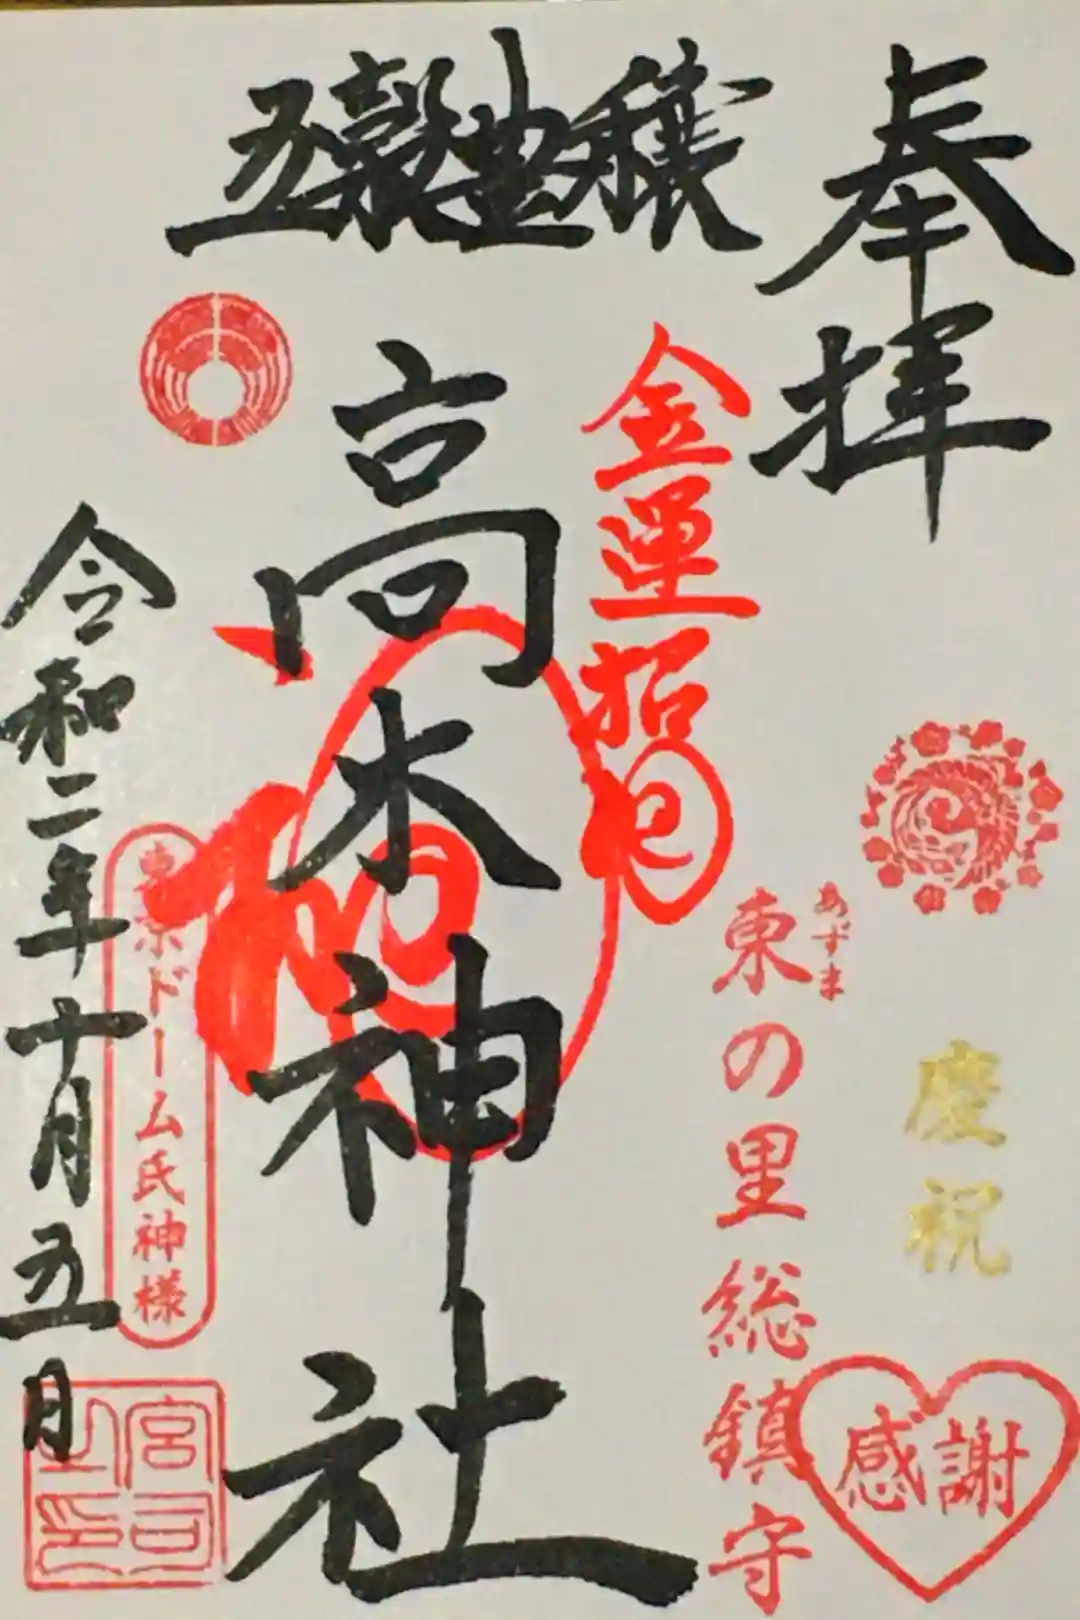 奉拝
慶祝
感謝
あずま
東の里総鎮守
金運招
五穀豊穣
高木神社
東京ドーム氏神様
令和二年十月五日
宮司之印